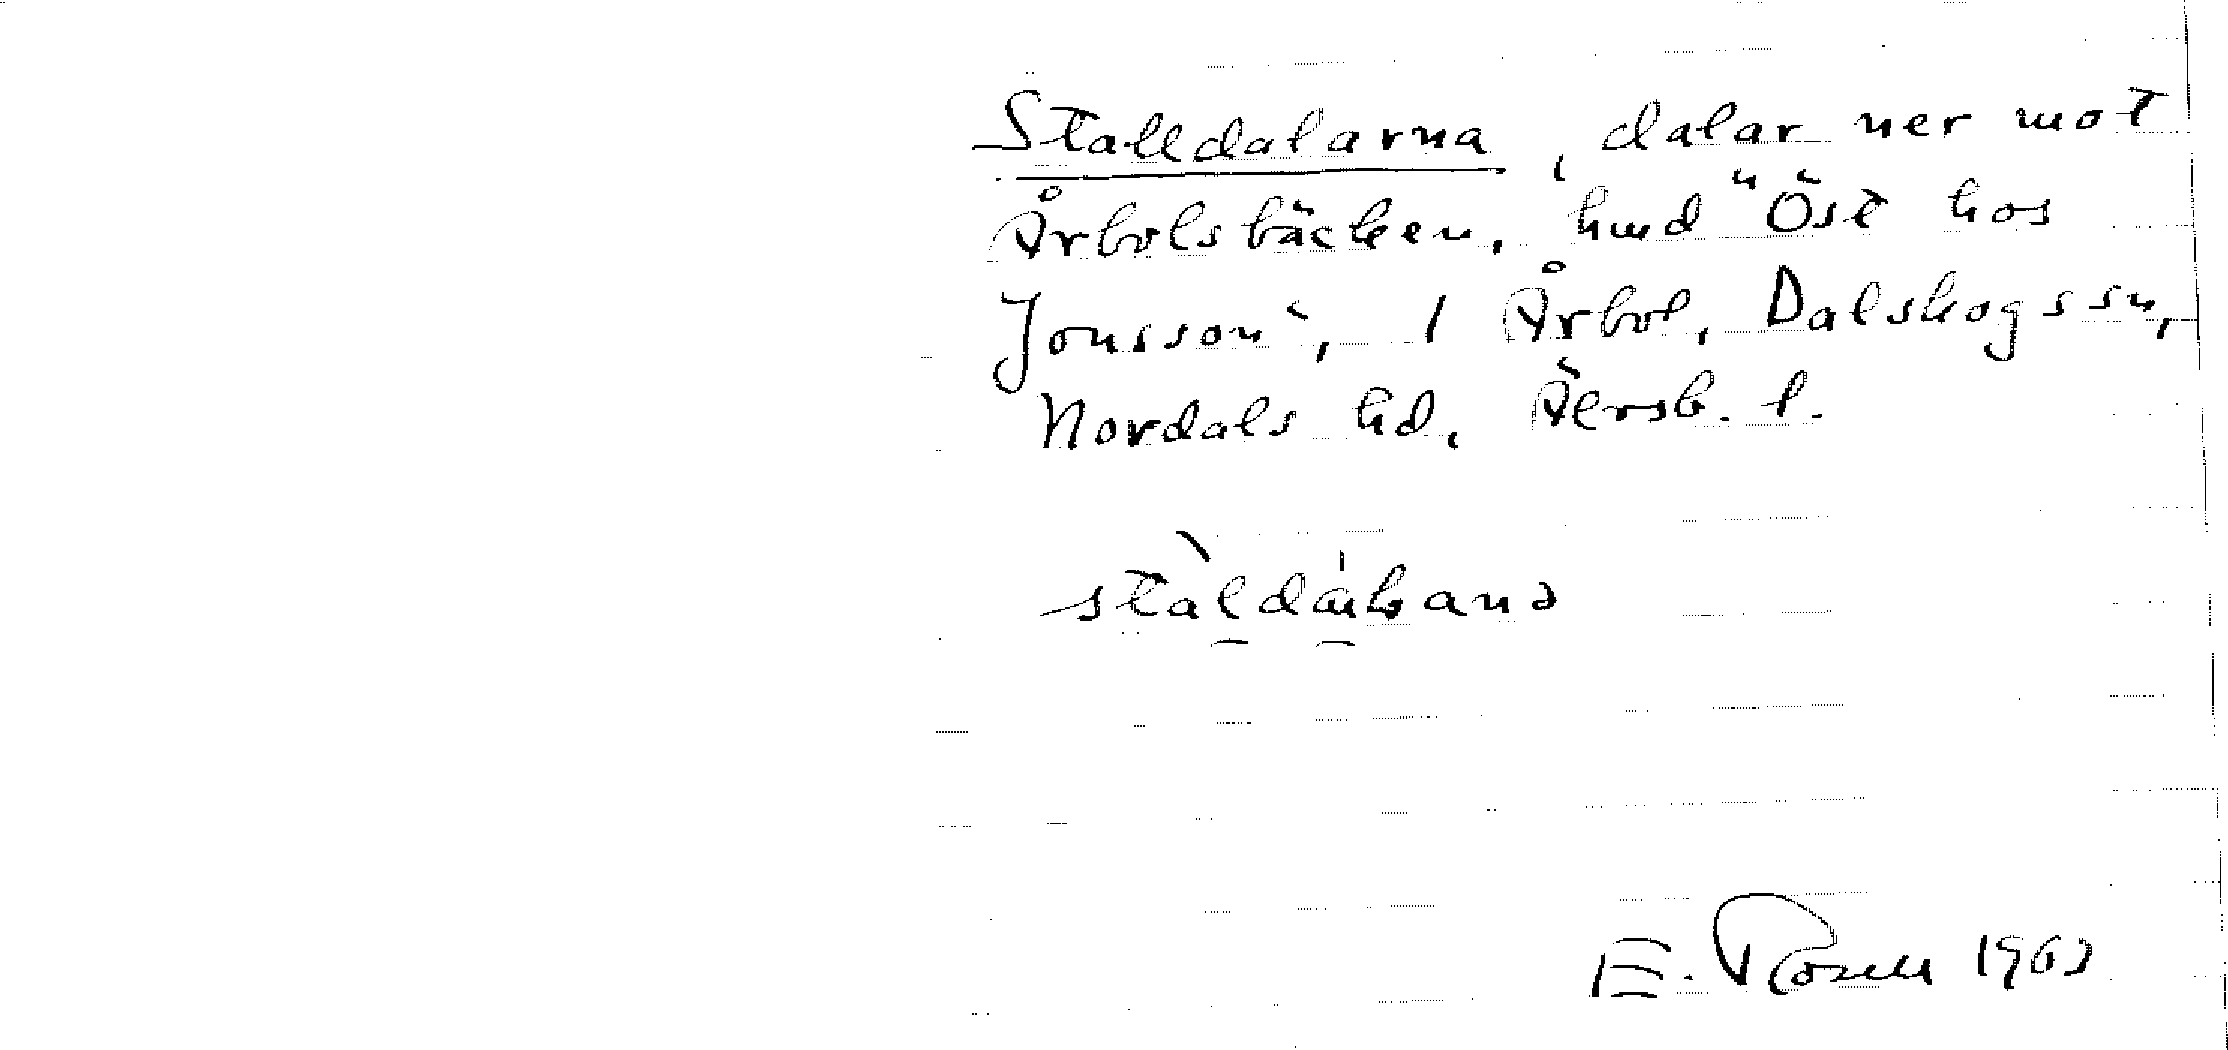 Stalldalarna, dalar ner mot
Årbolsbäcken, hmd "Öst hos
Jonsson", 1 Årbol, Dalskogs sn,
Nordals hd, Älvsb. l.
E. Rosell 1962